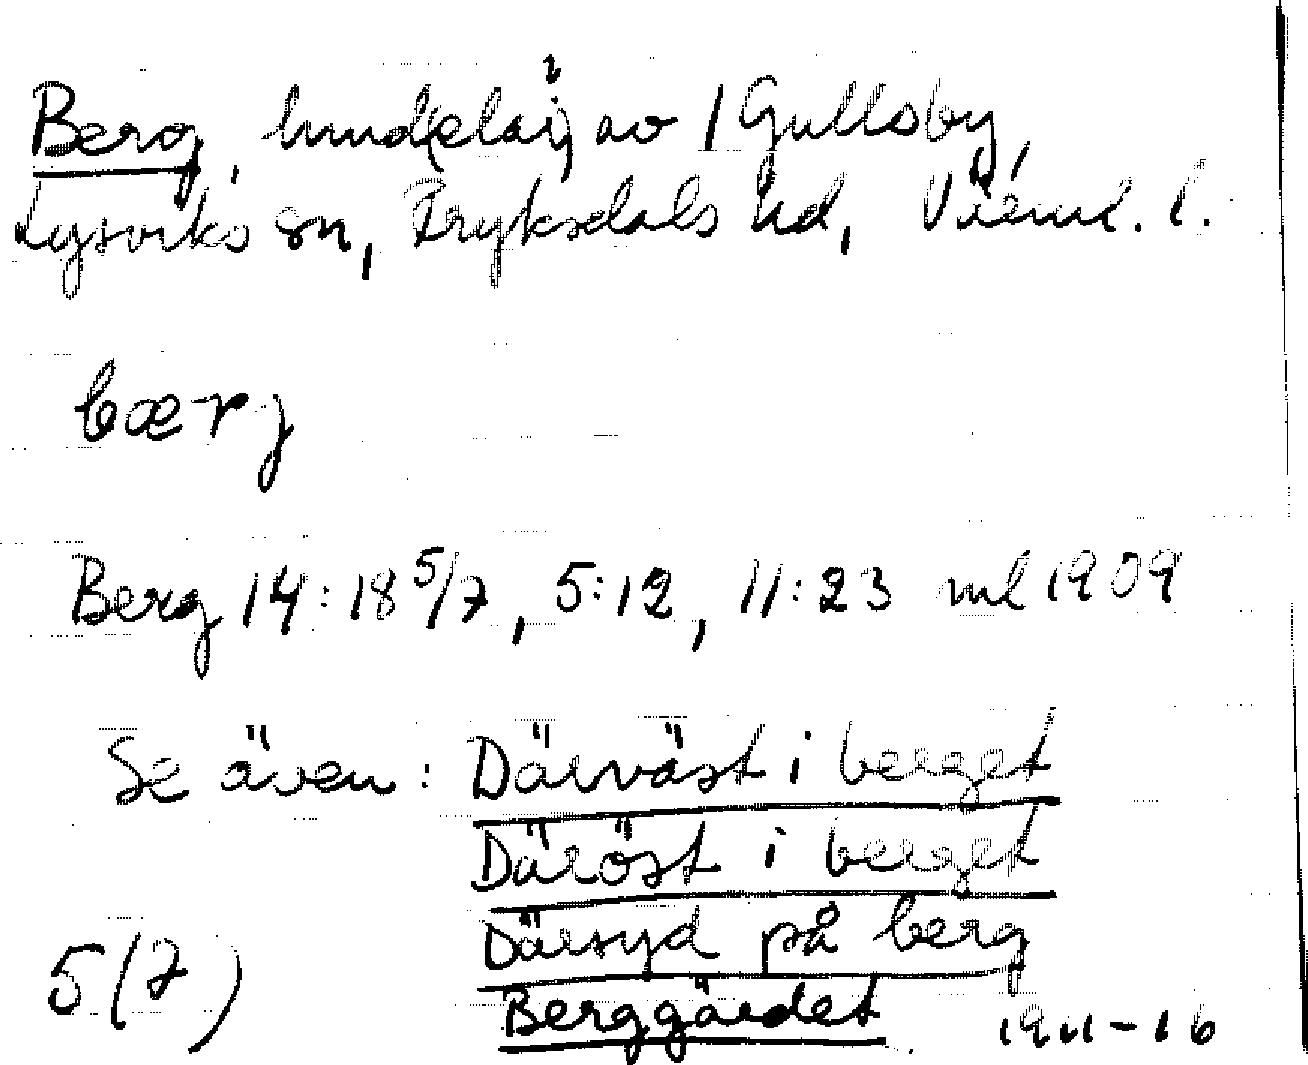 Berg, hmd(elar) av / Gullsby,
Lysviks sn, Fryksdals hd, Värml. l.
bærj
Berg 14:18 5/7, 5:12, 11:23 ml 1909
Se även: Därväst i berget
Däröst i berget
Därsyd på berg
5(7) Berggärdet 1911-16